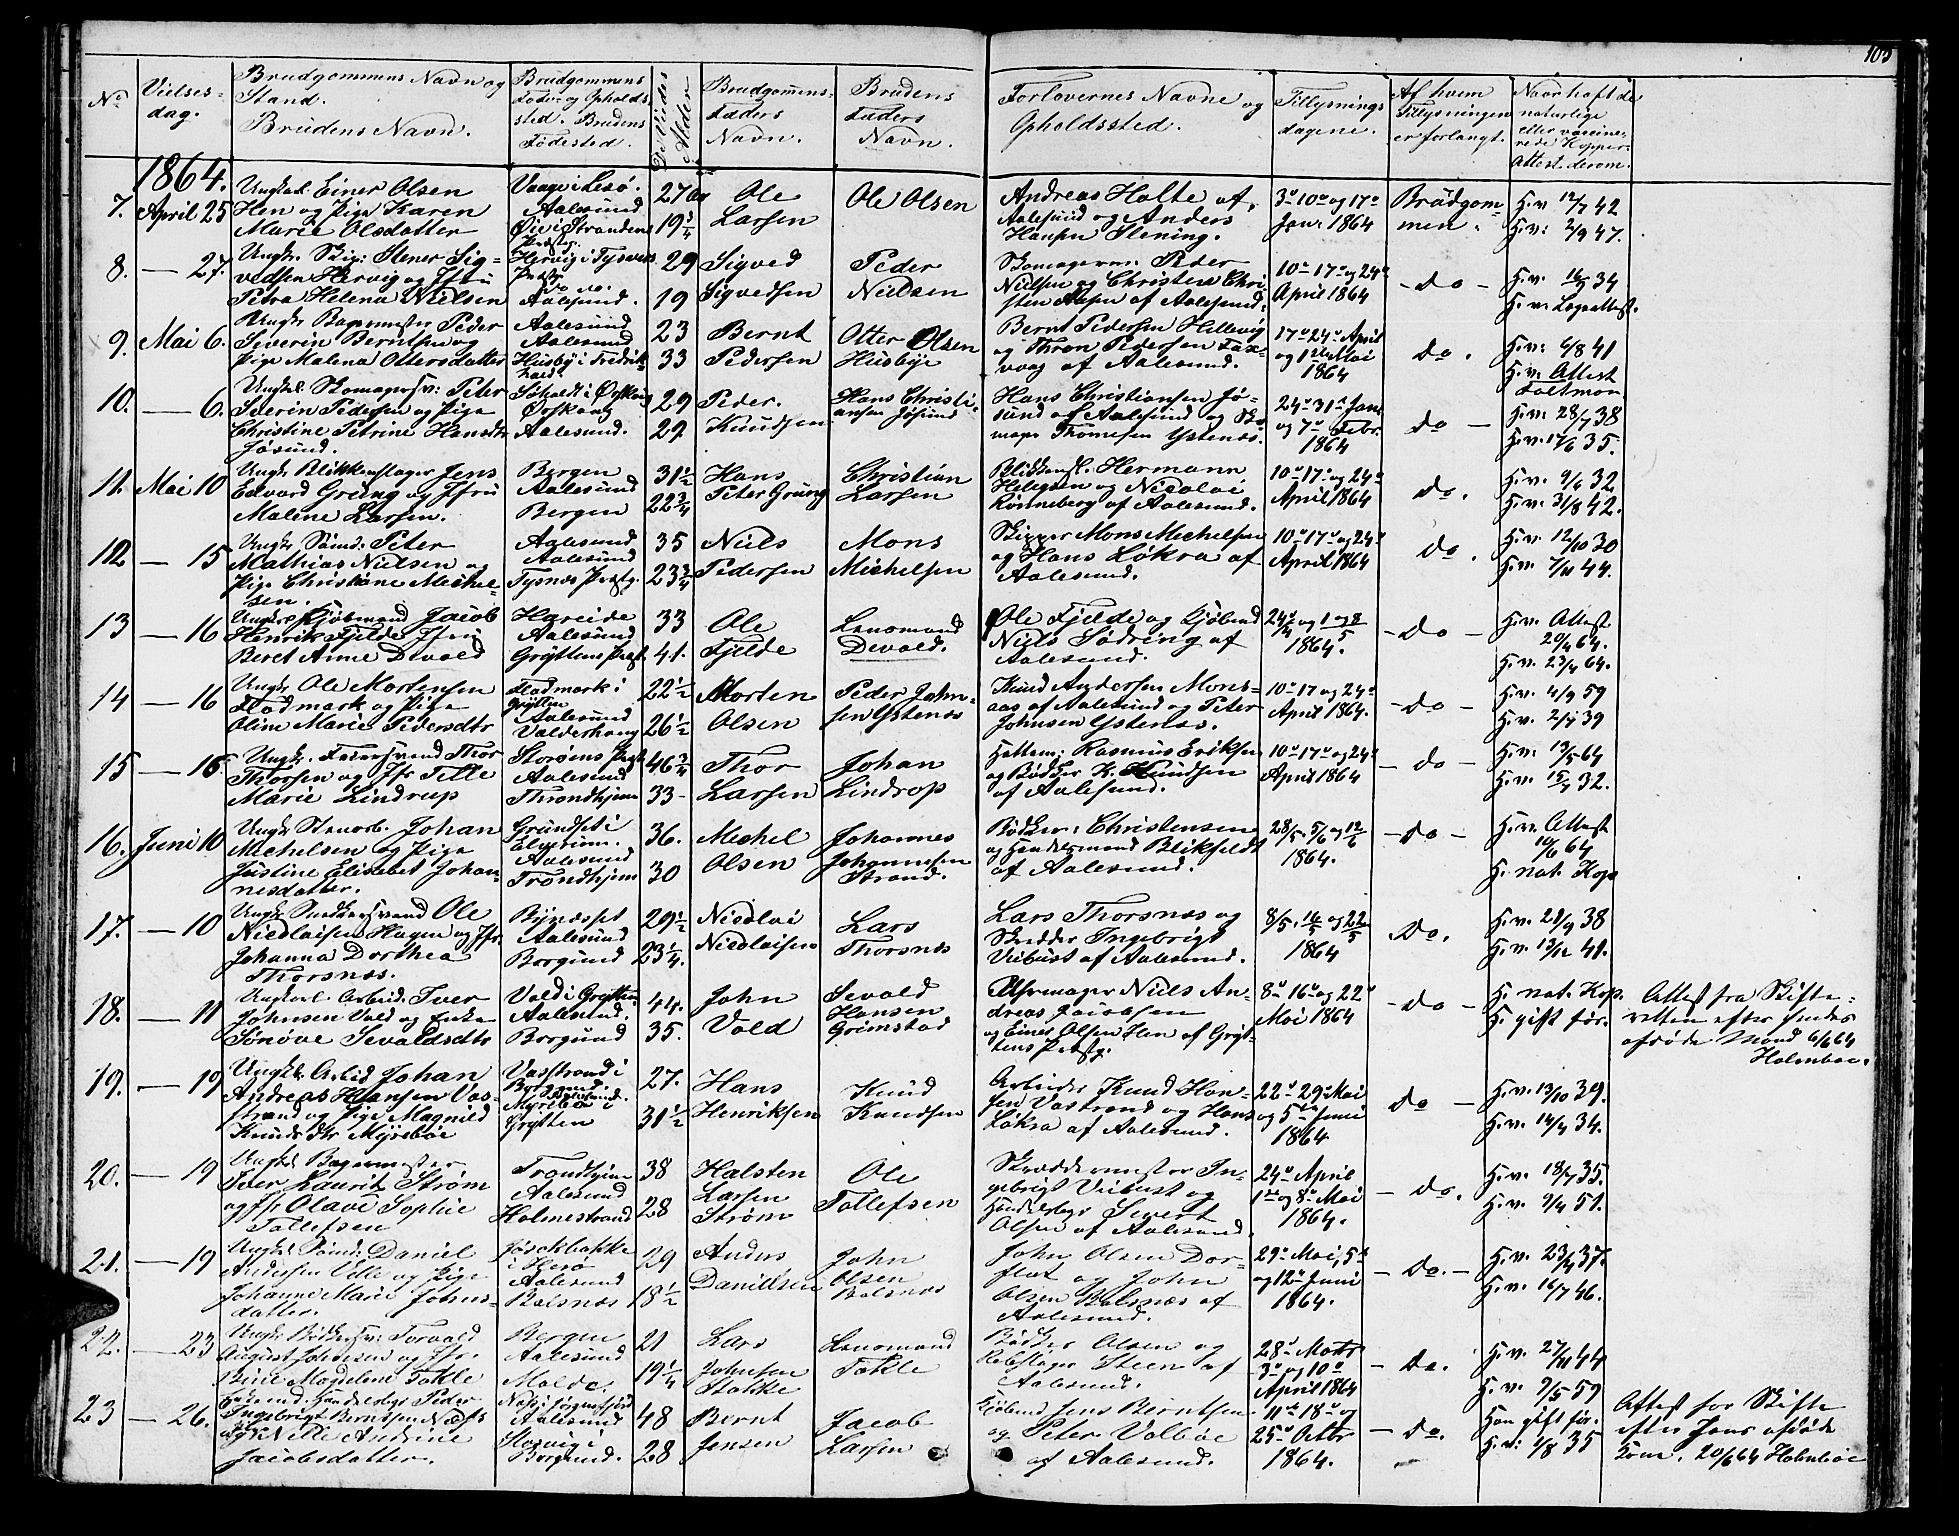 103
No
Vielses-
dag.
Brudgommens Navn og
Stand.
Brudens Navn.
Brudgommens
Føde- og Opholds
sted. Brudens
Fødested.
De Viedes
Alder
Brudgommens
Faders
Navn.
Brudens
Faders
Navn.
Forlovernes Navne og
Opholdssted.
Tillysnings
dagene.
Af hvem
Tillysningen
er forlangt.
Naar haft de
naturlige
eller vaccine-
rede Kopper.
Attest derom.
1864.
7. April 25
Ungkal. Einer Olsen
Hen og Pige Karen
Marie Olsdatter
Vaage i Lesø.
Aalesund
Øie i Strandens
Præstg.
27
19 3/4
Ole
Larsen
Ole Olsen
Andreas Holte af
Aalesund og Anders
Hansen Slening.
3. 10. og 17.
Jan. 1864
Brudgom-
men.
H. v. 12/7 42
H. v. 2/9 47.
8. — 27.
Stener Sig-
vedsen Hervig og Jfru
Petra Helena Nielsen
Hervig i Tysvær
Aalesund.
29
19
Sigved
Sigvedsen
Peder
Nielsen
Skomagerne: Peder
Nielsen og Christen Chri
sten Aasen af Aalesund.
10. 17. og 24.
April 1864
— do —
H. v. 34
H. v. Lægeattest.
9. Mai 6.
Ungk. Bagermester Peder
Severin Berntsen og
Pige Malena Ottersdatter
Aalesund
Aalesund
Husby i Fredrik-
23
33
Bernt
Pedersen
Otter Olsen
Husbye
Bernt Pedersen Hellevig
og Thron Pedersen Tax-
vaag af Aalesund.
17. 24. April
og 1ste Mai
1864
do.
H. v. 6/8 41
H. v. Attest
10. — 6.
Ungkl. Skomagersv: Peter
Severin Pedersen og Pige
Christine Petrine Hansdtr
Jøsund.
Søholt i Ørskoug
Ørskoug
Aalesund.
29
29
Peder.
Knudsen
Hans Christi-
ansen Jøsund
Hans Christiansen Jø-
sund af Aalesund og Sko
mager Thomesen Ystenæs.
24. 31. Jan
og 7. Febr.
1864
do —
H. v. 28/7 38
H. v. 17/6 35.
11. Mai 10
Ungk. Blikkenslager Jens
Edvard Grung og Jfru
Malene Larsen.
Bergen
Aalesund
Bergen
31 1/2
22 3/4
Hans
Peter Grung
Christian
Larsen
Blikkensl. Hermann
Helgesen og Nicolai
Rønneberg af Aalesund.
10. 17. og 24.
April 1864
do.
H. v. 9/6 32
H. v. 31/8 42.
12. — 15
Ungk. Sømd: Peter
Mathias Nielsen og
Pige Christine Michel-
sen.
Aalesund
Aalesund
Tysnæs Præstg.
35
23 3/4
Niels
Pedersen
Mons
Michelsen
Skipper Mons Michelsen
og Hans Løkra af
Aalesund.
10. 17. og 24.
April 1864
do.
H. v. 12/10 30
H. v. 7/11 44.
13 — 16
Ungk. Kjøbmand Jacob
Henrik Fjelde Jfru
Beret Anne Devold
Hareide
Aalesund
Gryttens Præst.
33
41.
Ole
Fjelde
Lensmand
Devold.
Ole Fjelde og Kjøbmd
Niels Sødring af
Aalesund.
24/4 og 1 og 8/5
1864.
— do —
H. v. Attest
20/4 64.
H. v. 23/4 64.
14 — 16
Ungk. Ole Mortensen
Fladmark og Pige
Oline Marie Pedersdtr
Fladmark i
Grytten
Aalesund
Valderhoug
22 1/2
26 1/2
Morten
Olsen
Peder John-
sen Ystenæs
Knud Andersen Mons-
aas af Aalesund og Peter
Johnsen Ystenæs.
10. 17 og 24.
April 1864.
— do —
H. v. 4/9 59
H. v. 2/7 39
15 — 16
Thor
Thorsen og Jfr Tille
Marie Lindrup
Storøens Præst
Aalesund
Throndhjem
46 3/4
33
Thor
Larsen
Johan
Lindrop
Hattem: Rasmus Eriksen
og Bødker K. Knudsen
af Aalesund.
10. 17. og 24.
April 1864
— do —
H. v. 13/5 64
H. v. 15/7 32.
16. Juni 10
Ungk. Stenarb. Johan
Michelsen og Pige
Justine Elisebet Johan-
nesdatter.
Grundset i
Elverum.
Aalesund
Trondhjem
36.
30
Michel
Olsen
Johannes
Johannesen
Strand.
Bødker: Christensen
og Handelsmand Blikfeldt
af Aalesund.
28/5. 5/6 og 12/6
1864.
— do —
H. v. Attest
10/6 64
H. nat. Kop
17. — 10
Ungk. Snedkersvend Ole
Nicolaisen Hagen og Jfr.
Johanna Dorthea
Thorsnæs.
Bynæsset
Aalesund
Borgund
29 1/2
23 1/4.
Nicolai
Nicolaisen
Lars
Thorsnæs
Lars Thorsnæs og
Skredder Ingebrigt
Veibust af Aalesund.
8/5. 16/5 og 22/5
1864
do.
H. v. 28/9 38
H. v. 13/12 41.
18. — 11
Ungkarl Arbeid. Iver
Johnsen Vold og Enke
Sønøve Sevaldsdtr
Vold i Grytten
Aalesund.
Borgund
44.
35.
John
Vold
Sevald
Hansen
Grimstad
Uhrmager Niels An-
dreas Jacobsen
og Einer Olsen Hen af Gryt-
tens Præstg.
8. 16. og 22.
Mai 1864
— do —
H. nat. Kop.
H. gift før.
Attest fra Skifte-
retten efter hendes
afdøde Mand 6/6 64
Holmboe.
19. — 19
Ungkl. Arbeid Johan
Andreas Hansen Vas-
strand og Pige Magnild
Knudsdtr Myrebøe
Vasstrand i
Borgund.
Aalesund.
Myrebøe i
Grytten
27.
31 1/2
Hans
Henriksen
Knud
Knudsen
Arbeider Knud Han-
sen Vastrand og Hans
Løkra af Aalesund.
22. 29. Mai
og 5te Juni
1864
do —
H. v. 13/10 39.
H. v. 14/9 34.
20. — 19
Ungkl Bagermester
Iver Laurits Strøm
og Jfr Olave Sophie
Tollefsen
Trondhjem
Aalesund
Holmestrand
38
28
Halsten
Larsen
Strøm
Ole
Tollefsen
Skræddermester In-
gebrigt Veibust og
Handelsbgr Sivert
Olsen af Aalesund.
24. April
1ste og 8. Mai
1864.
— do.
H. v. 18/7 35.
H. v. 9/4 51.
21. — 19
Ungkl Sømd: Daniel
Andersen Ville og Pige
Johanne Marie Johns-
datter.
i Herø
Aalesund
Bolsnæs
29
18 1/2
Anders
Danielsen
John
Olsen
Bolsnæs
John Olsen Dor-
flot og John
Olsen Bolsnæs af
Aalesund.
29. Mai, 5.
og 12. Juni
1864.
— do. —
H. v. 23/9 37.
H. v. 16/7 46.
22. — 23
Ungk. Bødkersv: Torvald
August Johnsen og Jfr.
Magdelene Tokle
Bergen
Aalesund
Molde.
21
19 1/4
Lars
Johnsen
Stokke
Lensmand
Tokle
Bødker Olsen og
Rebslager Steen af
Aalesund.
28. Marts
3. og 10.
April 1864
— do.
H. v. 27/11 44
H. v. 9/5 59
23 — 26.
Enkemd. Handelsbgr Peder
Ingebrigt Berntsen Næss
og Pige Nille Andrine
Jacobsdatter.
Aalesund
Storvig i
Borgund.
48
28
Bernt
Jensen
Jacob
Larsen
Kjøbmd Jens Berntsen
og Peter Volbøe
af Aalesund.
11. 18. og
25. Octbr
1864.
— do.
Han gift før.
H. v: 2/8 35
Attest for Skifte
efter hans afdøde
Kone. 20/6 64 Holmboe